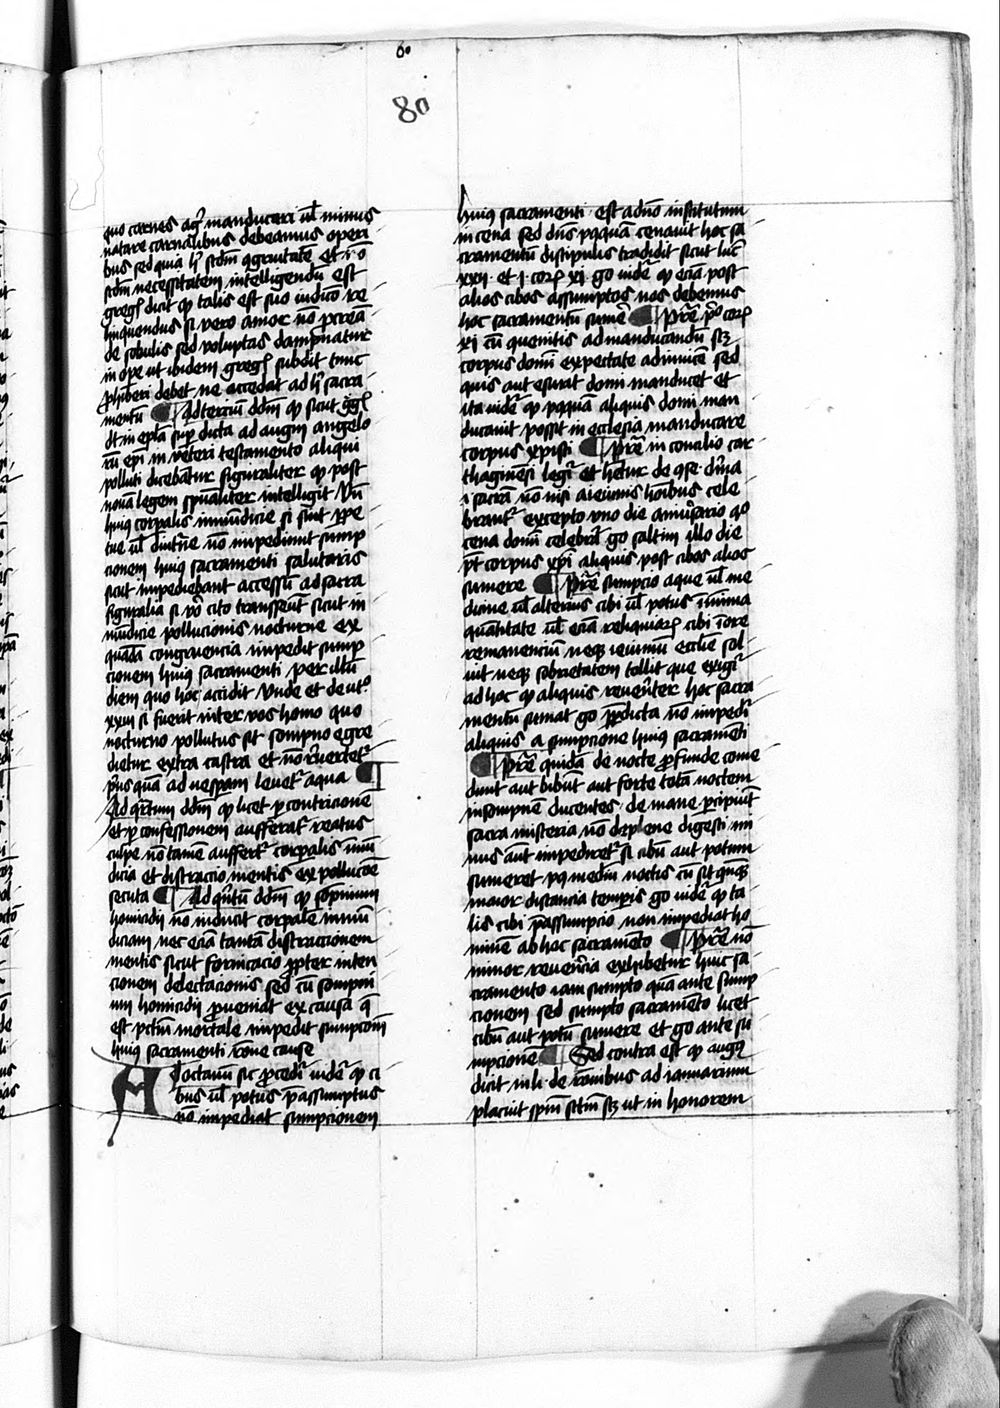 80
quo carnes agni manducari ul minus
natare carnalibus debeamus operi
bus sed quia hoc scdm congruitate et no
scdm necessitatem intelligendu est
gregs dicit qp talis est suo iudico re
linquendus si vero amor no pcrea
de sobolis sed voluptas dampnatur
in ope ut ibidem gregs subdit tunc
phiberi debet ne accedat ad h sacra
mentu Ad terciu ddm qp sicut ggs
dt in epla sup dicta ad augm anglo
ru epm in veteri testamento aliqui
polluti dicebatur figuraliter qp post
noua legem spualiter intelligit Vn
huiq corpalis inmudicie si sint ppe
tue ul diutne no impediunt sump
cionem huiq sacramenti salutaris
sicut impediebant accessu ad sacra
figuralia si vo cito transseut sicut in
mudicie pollucionis nocturne ex
quada congruencia impedit sump
cionem huiq sacramenti per illu
diem quo hoc accidit Vnde et deut.
xxiii si fuerit inter vos homo quo
nocturno pollutus sit sompno egre
dietur extra castra et no reuertet
pus qua ad vespam leuet aqua
Ad qrtum ddm qp licet p contricione
et p confessionem aufferat reatus
culpe no tame auffert corpalis inmu
dicia et distraccio mentis ex pollucoe
secuta Ad qntu ddm qp sompnium
homicidii no inducit corpale inmu
diciam nec ecia tanta distraccionem
mentis sicut fornicacio ppter inten
cionem delectacionis sed cu sompni
um homicidii pueniat ex causa q
est pctm mortale impedit sumpcom
huiq sacramenti racone cause
Ad octauu sic pcedi uide qp ci
bus ul potus passumptus
no impediat sumpcionem
huiq sacramenti est a dno institutum
in cena sed dns pqqua cenauit hoc sa
cramentu discipulis tradidit sicut luc
xxii et i cor xi go uide qp ecia post
alios cibos assumptos nos debemus
hoc sacramentu sume Pre po cor
xi cu quenitis ad manducandu scz
corpus domini expectate ad inuice sed
quis aut esurit domi manducet et
ita uide qp pqqua aliquis domi man
ducauit possit in ecclesia manducare
corpus xpisti Pre in concilio car
thaginesi legi et hetur de qse dma
i sacra no nisi a ieiunis hoibus cele
brant excepto vno die aniuersario qo
cena domi celebra go saltim illo die
pt corpus xpi aliquis post cibos alios
sumere Pre sumpcio aque ul me
dicine ul alterius cibi ul potus i minima
quatitate ul ecia reliquiar cibi i ore
remanencium neqz ieiuniu ecclie sol
uit neqz sobrietatem tollit que exigi
ad hoc qp aliquis reuerter hoc sacra
mentu sumat go pdicta no impedi
aliquis a sumpcione huiq sacrameti
Pre quida de nocte pfunde come
dunt aut bibut aut forte tota noctem
insompne ducentes de mane pcipiut
sacra misteria no du plene digesti mi
nus aut impediret si cibu aut potum
sumeret pq mediu noctis cu sit quqz
maior distancia tempis go uide qp ta
lis cibi passumpcio non impediat ho
mine ab hoc sacrameto Pre no
minor reuerecia exhibetur huic sa
cramento iam sumpto qua ante sump
cionem sed sumpto sacrameto licet
cibu aut potu sumere et go ante su
mpcione Sed contra est qp augq
dicit in li de romibus ad ianuarium
placuit spui scto scz ut in honorem